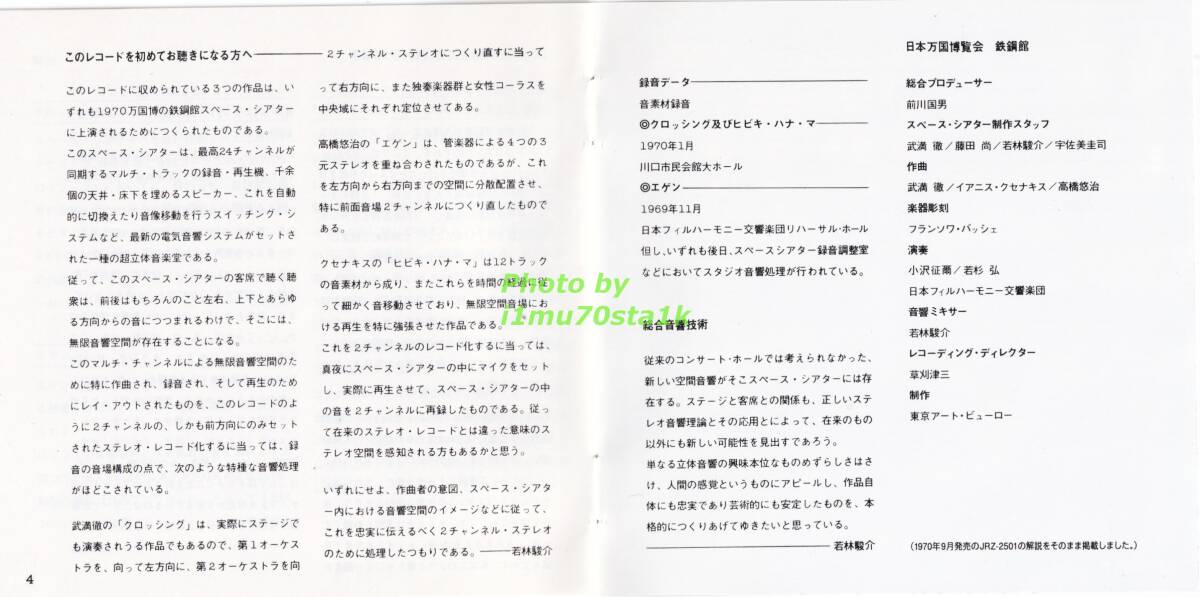 このレコードを初めてお聴きになる方へ――――2チャンネル・ステレオにつくり直すに当って
このレコードに収められている3つの作品は、い
ずれも1970万国博の鉄鋼館スペース・シアター
に上演されるためにつくられたものである。
このスペース・シアターは、最高24チャンネルが
同期するマルチ・トラックの録音・再生機、千余
個の天井・床下を埋めるスピーカー、これを自動
的に切換えたり音像移動を行うスイッチング・シ
ステムなど、最新の電気音響システムがセットさ
れた一種の超立体音楽堂である。
従って、このスペース・シアターの客席で聴く聴
衆は、前後はもちろんのこと左右、上下とあらゆ
る方向からの音につつまれるわけで、そこには、
無限音響空間が存在することになる。
このマルチ・チャンネルによる無限音響空間のた
めに特に作曲され、録音され、そして再生のため
にレイ・アウトされたものを、このレコードのよ
うに2チャンネルの、しかも前方向にのみセット
されたステレオ・レコード化するに当っては、録
音の音場構成の点で、次のような特種な音響処理
がほどこされている。
武満徹の「クロッシング」は、実際にステージで
も演奏されうる作品でもあるので、第1オーケス
トラを、向って左方向に、第2オーケストラを向
4
って右方向に、また独奏楽器群と女性コーラスを
中央域にそれぞれ定位させてある。
高橋悠治の「エゲン」は、管楽器による4つの3
元ステレオを重ね合わされたものであるが、これ
を左方向から右方向までの空間に分散配置させ、
特に前面音場2チャンネルにつくり直したもので
ある。
クセナキスの「ヒビキ・ハナ・マ」は12トラック
の音素材から成り、またこれらを時間の経過に従
って細かく音移動させており、無限空間音場にお
ける再生を特に強張させた作品である。
これを2チャンネルのレコード化するに当っては、
真夜にスペース・シアターの中にマイクをセット
し、実際に再生させて、スペース・シアターの中
の音を2チャンネルに再録したものである。従っ
て在来のステレオ・レコードとは違った意味のス
テレオ空間を感知される方もあるかと思う。
いずれにせよ、作曲者の意図、スペース・シアタ
ー内における音響空間のイメージなどに従って、
これを忠実に伝えるべく2チャンネル・ステレオ
のために処理したつもりである。――若林駿介
録音データ――――
音素材録音
◎クロッシング及びヒビキ・ハナ・マ――――
1970年1月
川口市民会館大ホール
◎エゲン――――
1969年11月
日本フィルハーモニー交響楽団リハーサル・ホール
但し、いずれも後日、スペースシアター録音調整室
などにおいてスタジオ音響処理が行われている。
総合音響技術
従来のコンサート・ホールでは考えられなかった、
新しい空間音響がそこスペース・シアターには存
在する。ステージと客席との関係も、正しいステ
レオ音響理論とその応用とによって、在来のもの
以外にも新しい可能性を見出すであろう。
単なる立体音響の興味本位なものめずらしさはさ
け、人間の感覚というものにアピールし、作品自
体にも忠実であり芸術的にも安定したものを、本
格的につくりあげてゆきたいと思っている。
――――若林駿介
日本万国博覧会 鉄鋼館
総合プロデューサー
前川国男
スペース・シアター制作スタッフ
武満 徹/藤田 尚/若林駿介/宇佐美圭司
作曲
武満 徹/イアニス・クセナキス/高橋悠治
楽器彫刻
フランソワ・バッシェ
演奏
小沢征爾/若杉 弘
日本フィルハーモニー交響楽団
音響ミキサー
若林駿介
レコーディング・ディレクター
草刈津三
制作
東京アート・ビューロー
(1970年9月発売のJRZ-2501の解説をそのまま掲載しました。)
Photo by
i1mu70sta1k